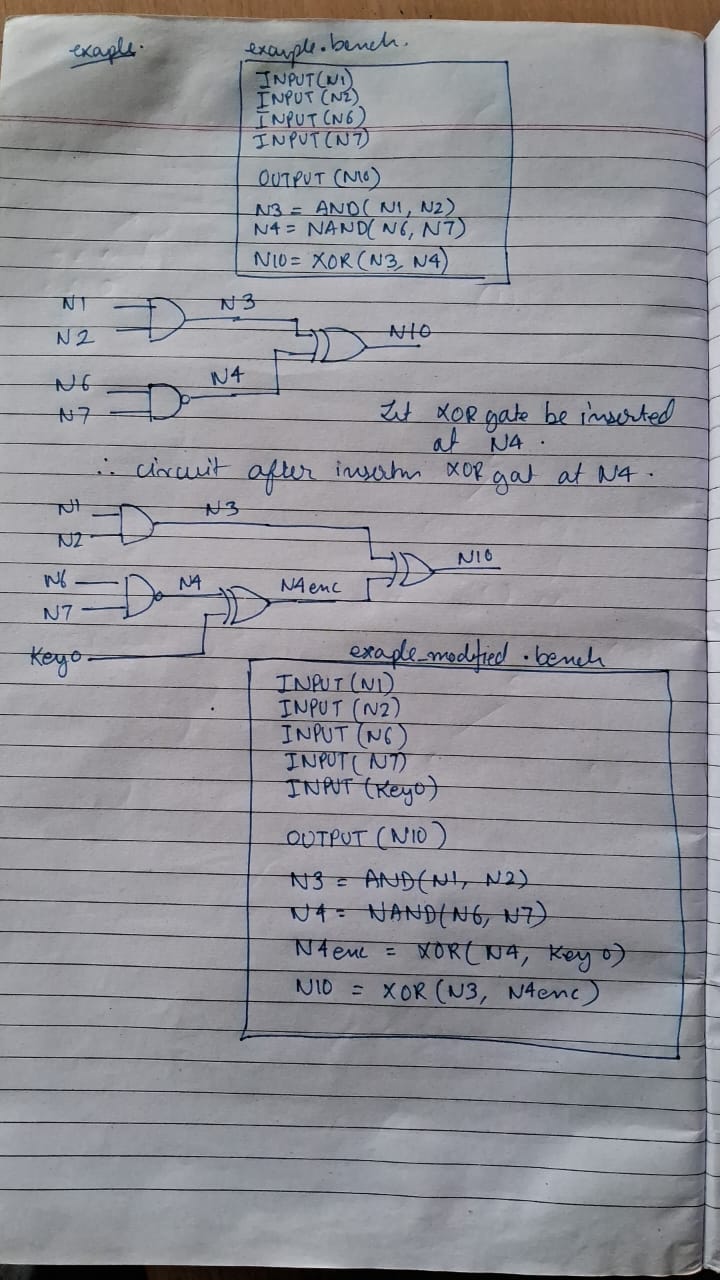 exaple.
example.bench.
INPUT(N1)
INPUT (N2)
INPUT (N6)
INPUT (N7)
OUTPUT (N10)
N3 = AND( N1, N2)
N4 = NAND( N6, N7)
N10 = XOR (N3, N4)
N1
N3
N2
N10
N6
N4
N7
Let XOR gate be inserted
at N4 .
∴ circuit after insertn XOR gat at N4 .
N1
N3
N2
N10
N6
N4
N4enc
N7
Key0
exaple_modified .bench
INPUT (N1)
INPUT (N2)
INPUT (N6)
INPUT ( N7)
INPUT (Key0)
OUTPUT (N10)
N3 = AND(N1, N2)
N4 = NAND(N6, N7)
N4enc = XOR( N4, Key 0)
N10 = XOR (N3, N4enc)